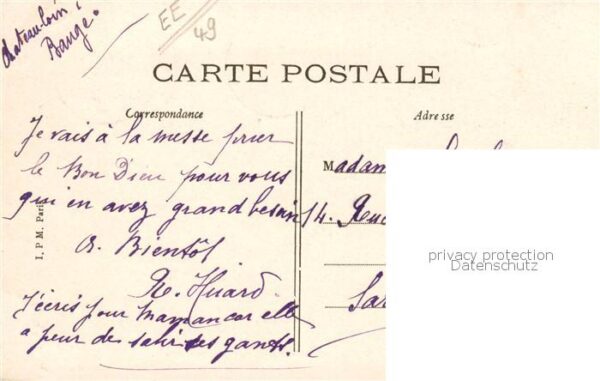 Bauge.
EE
49
CARTE POSTALE
Correspondance
Je vais à la messe prier
le Bon Dieu pour vous
qui en avez grand besoin
A. Bientôt
R. Huard.
J'écris pour Maman car elle
a peur de salir ses gants.
I. P. M. Paris
Adresse
Madam
14. Rue
Sar
privacy protection
Datenschutz